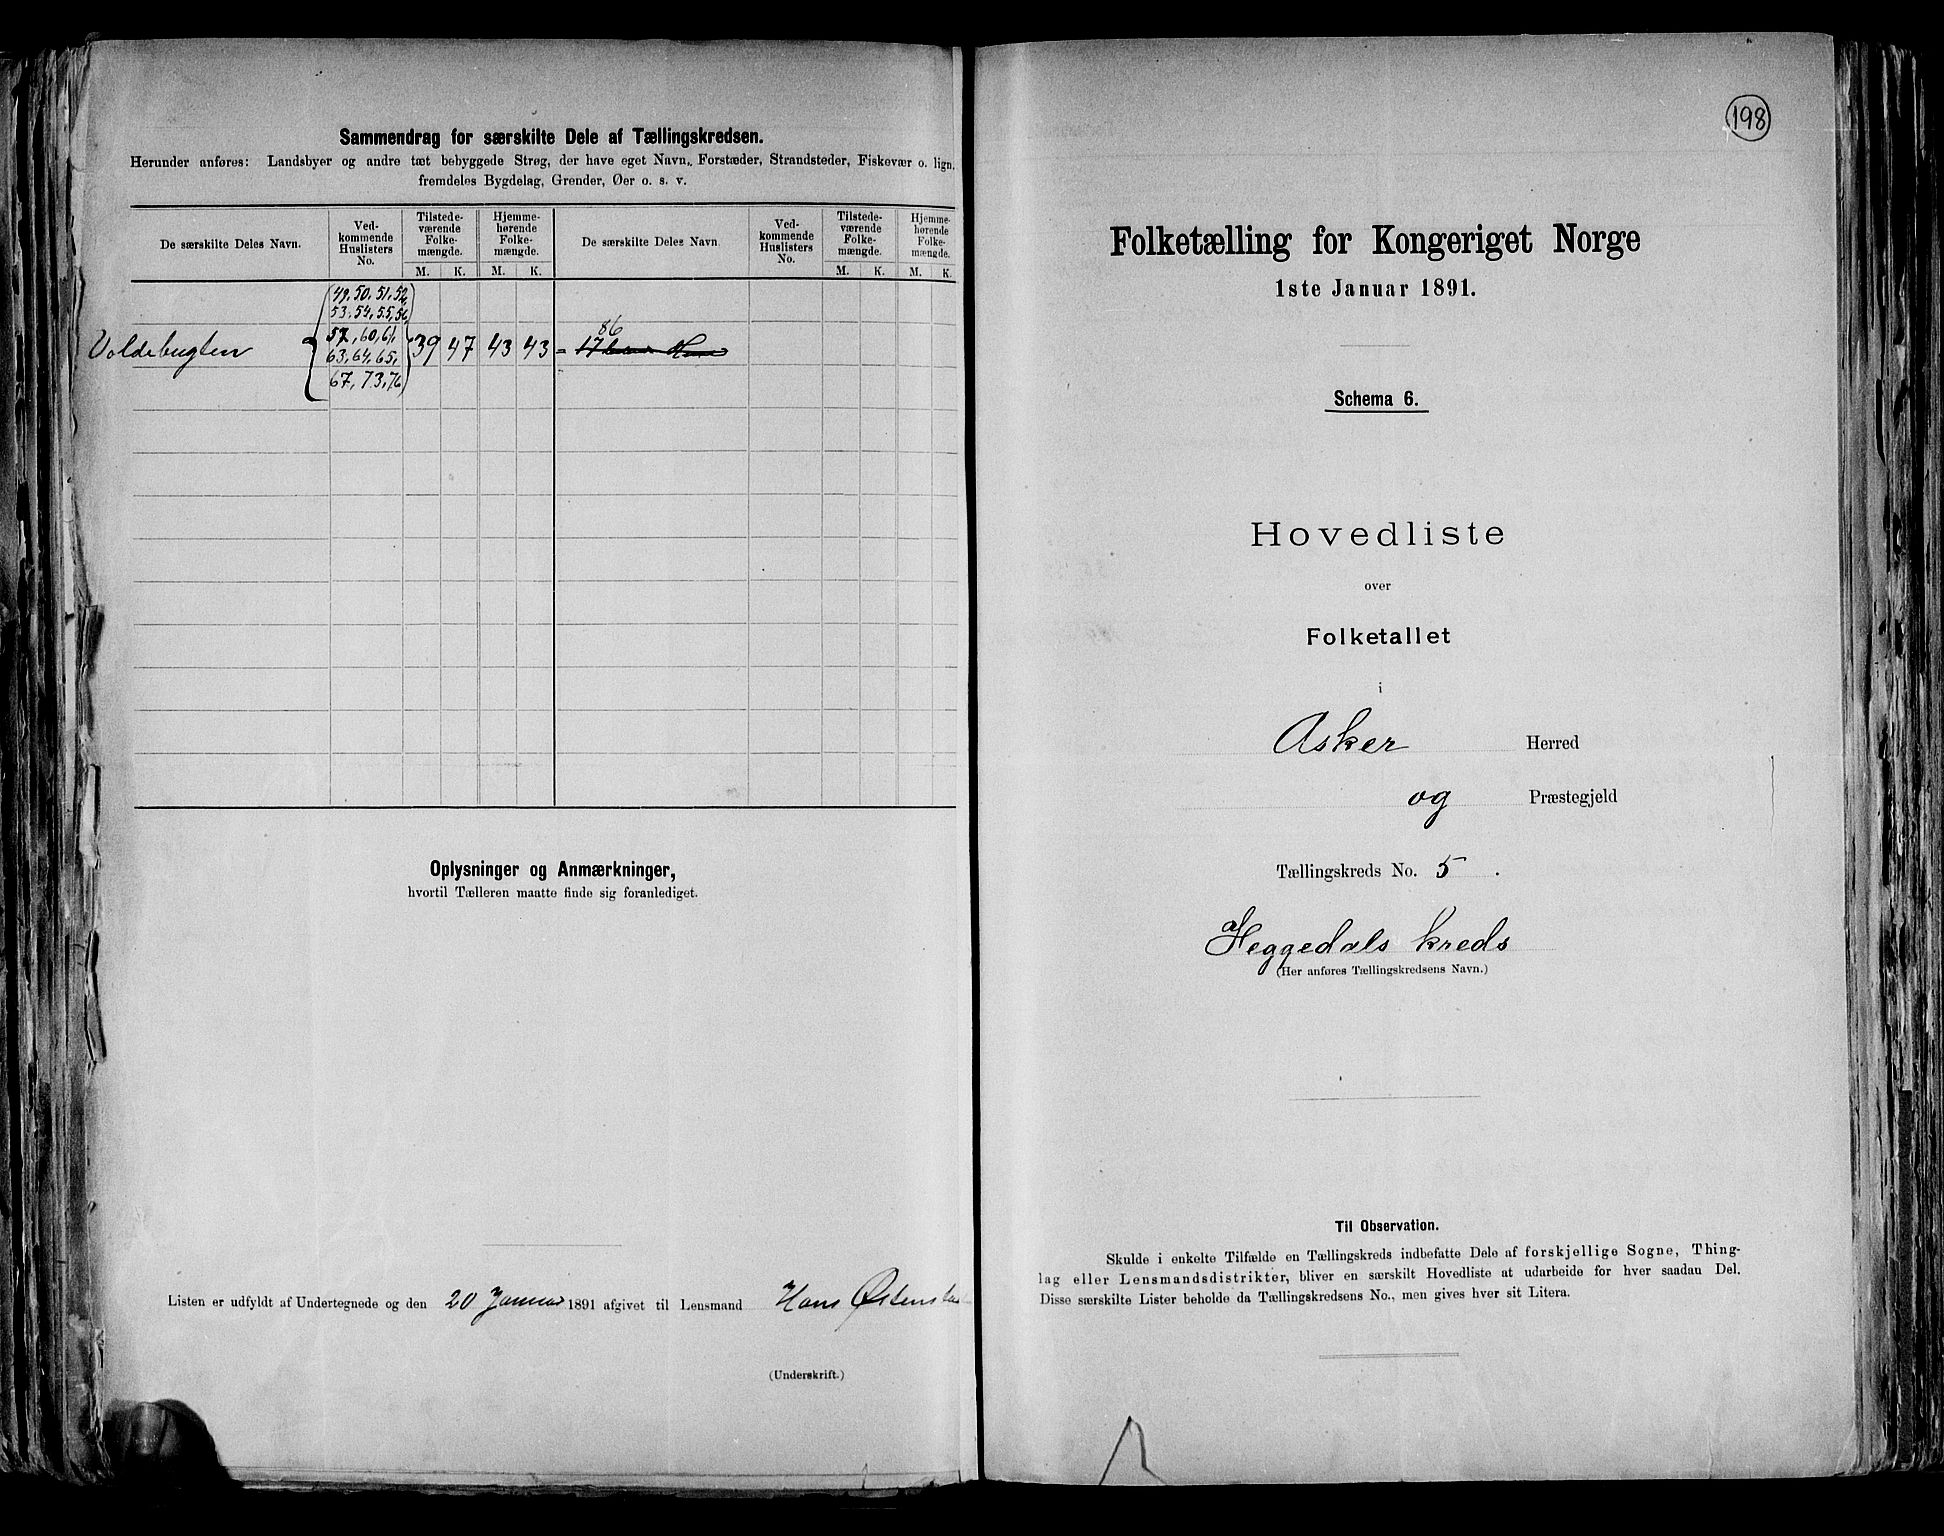 Sammendrag for særskilte Dele af Tællingskredsen.
Herunder anføres: Landsbyer og andre tæt bebyggede Strøg, der have eget Navn, Forstæder, Strandsteder, Fiskevær o. lign.
fremdeles Bygdelag, Grender, Øer o. s. v.
De særskilte Deles Navn.
Ved-
kommende
Huslisters
No.
Tilstede-
værende
Folke-
mængde.
M. K.
Hjemme-
hørende
Folke-
mængde.
M. K.
De særskilte Deles Navn
Ved-
kommende
Huslisters
No.
Tilstede-
værende
Folke-
mængde.
M. K.
Hjemme-
hørende
Folke-
mængde.
M. K.
49, 50, 51, 52,
53, 54, 55, 56,
57, 60, 61,
63, 64, 65,
67, 73, 76
Voldebugten
39 47 43 43 =
86
17
Oplysninger og Anmærkninger,
hvortil Tælleren maatte finde sig foranlediget.
Listen er udfyldt af Undertegnede og den 20 Januar 1891 afgivet til Lensmand Hans
(Underskrift.)
198
Folketælling for Kongeriget Norge
1ste Januar 1891.
Schema 6.
Hovedliste
over
Folketallet
i
Asker Herred
og Præstegjeld
Tællingskreds No. 5 .
Heggedals kreds
(Her anføres Tællingskredsens Navn.)
Til Observation.
Skulde i enkelte Tilfælde en Tællingskreds indbefatte Dele af forskjellige Sogne, Thing-
lag eller Lensmandsdistrikter, bliver en særskilt Hovedliste at udarbeide for hver saadan Del.
Disse særskilte Lister beholde da Tællingskredsens No., men gives hver sit Litera.